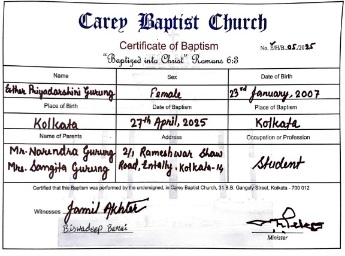 Carey Baptist Church
Certificate of Baptism
"Baptized into Christ" Romans 6:3
No. /05/2025
Name Sex Date of Birth
Esther Priyadarshini Gurung Female 23rd January, 2007
Place of Birth Date of Baptism Place of Baptism
Kolkata 27th April, 2025 Kolkata
Name of Parents Address Occupation or Profession
Mr. Narendra Gurung 2/1 Rameshwar Shaw Student
Mrs. Sangita Gurung Road, Entally, Kolkata-14
Certified that this Baptism was performed by the undersigned, in Carey Baptist Church, 31 B.B. Ganguly Street, Kolkata - 700 012
Witnesses Jamil Akhter
Biswadeep
Minister